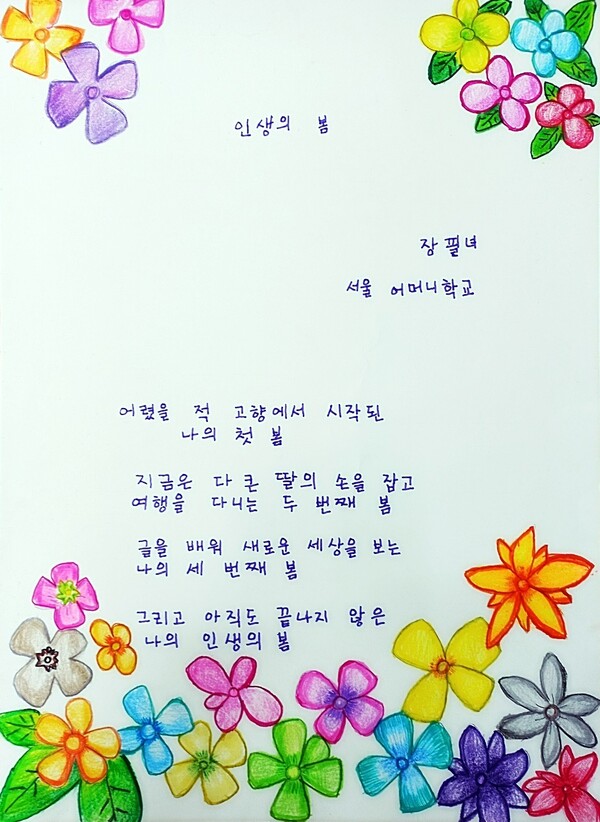 인생의 봄
장필녀
서울 어머니학교
어렸을 적 고향에서 시작된
나의 첫 봄
지금은 다 큰 딸의 손을 잡고
여행을 다니는 두 번째 봄
글을 배워 새로운 세상을 보는
나의 세 번째 봄
그리고 아직도 끝나지 않은
나의 인생의 봄